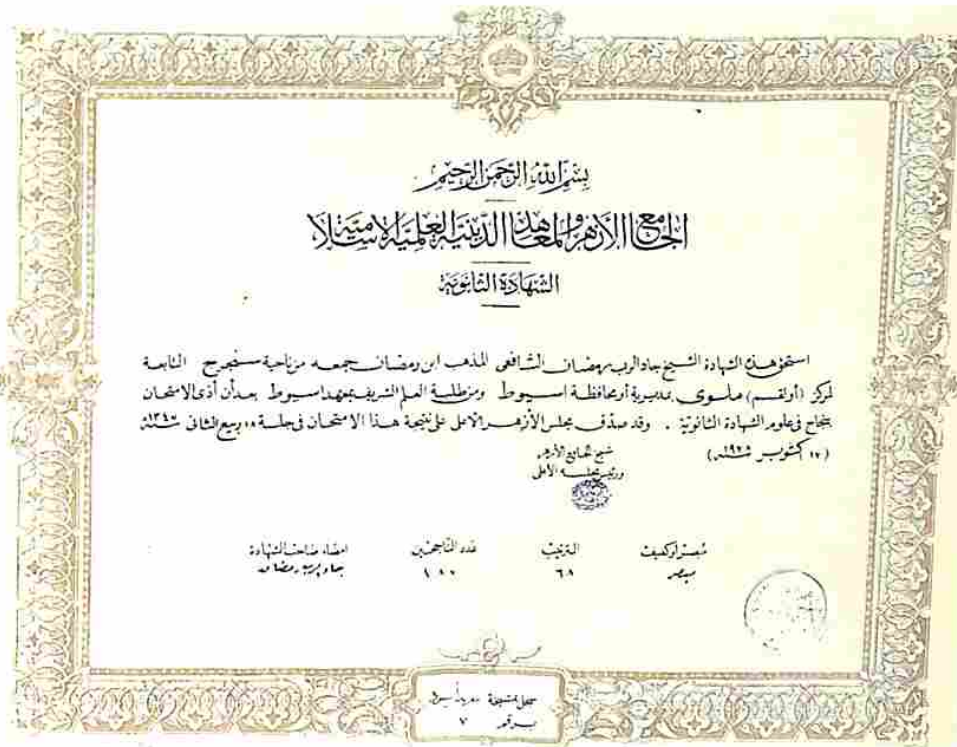 بسم الله الرحمن الرحيم
الجامع الأزهر والمعاهد الدينية العلمية الاسلامية
الشهادة الثانوية
استحق هذه الشهادة الشيخ جاد الرب رمضان الشافعي المذهب ابن رمضان جمعه من ناحية سنجرج التابعة
لمركز (أو لقسم) ملوى بمديرية أو محافظة اسيوط ومن طلبة العلم الشريف بمعهد اسيوط بعد أن أدى الامتحان
بنجاح في علوم الشهادة الثانوية . وقد صدّق مجلس الأزهر الاعلى على نتيجة هذا الامتحان في جلسة ربيع الثاني سنة
أكتوبر سنة
شيخ الجامع الأزهر
ورئيس مجلسه الأعلى
مبصر أو كفيف
الترتيب
عدد الناجحين
امضاء صاحب الشهادة
مبصر
٦٨
جاد الرب رمضان
سجل بمشيخة معهد أسيوط
برقم ٧